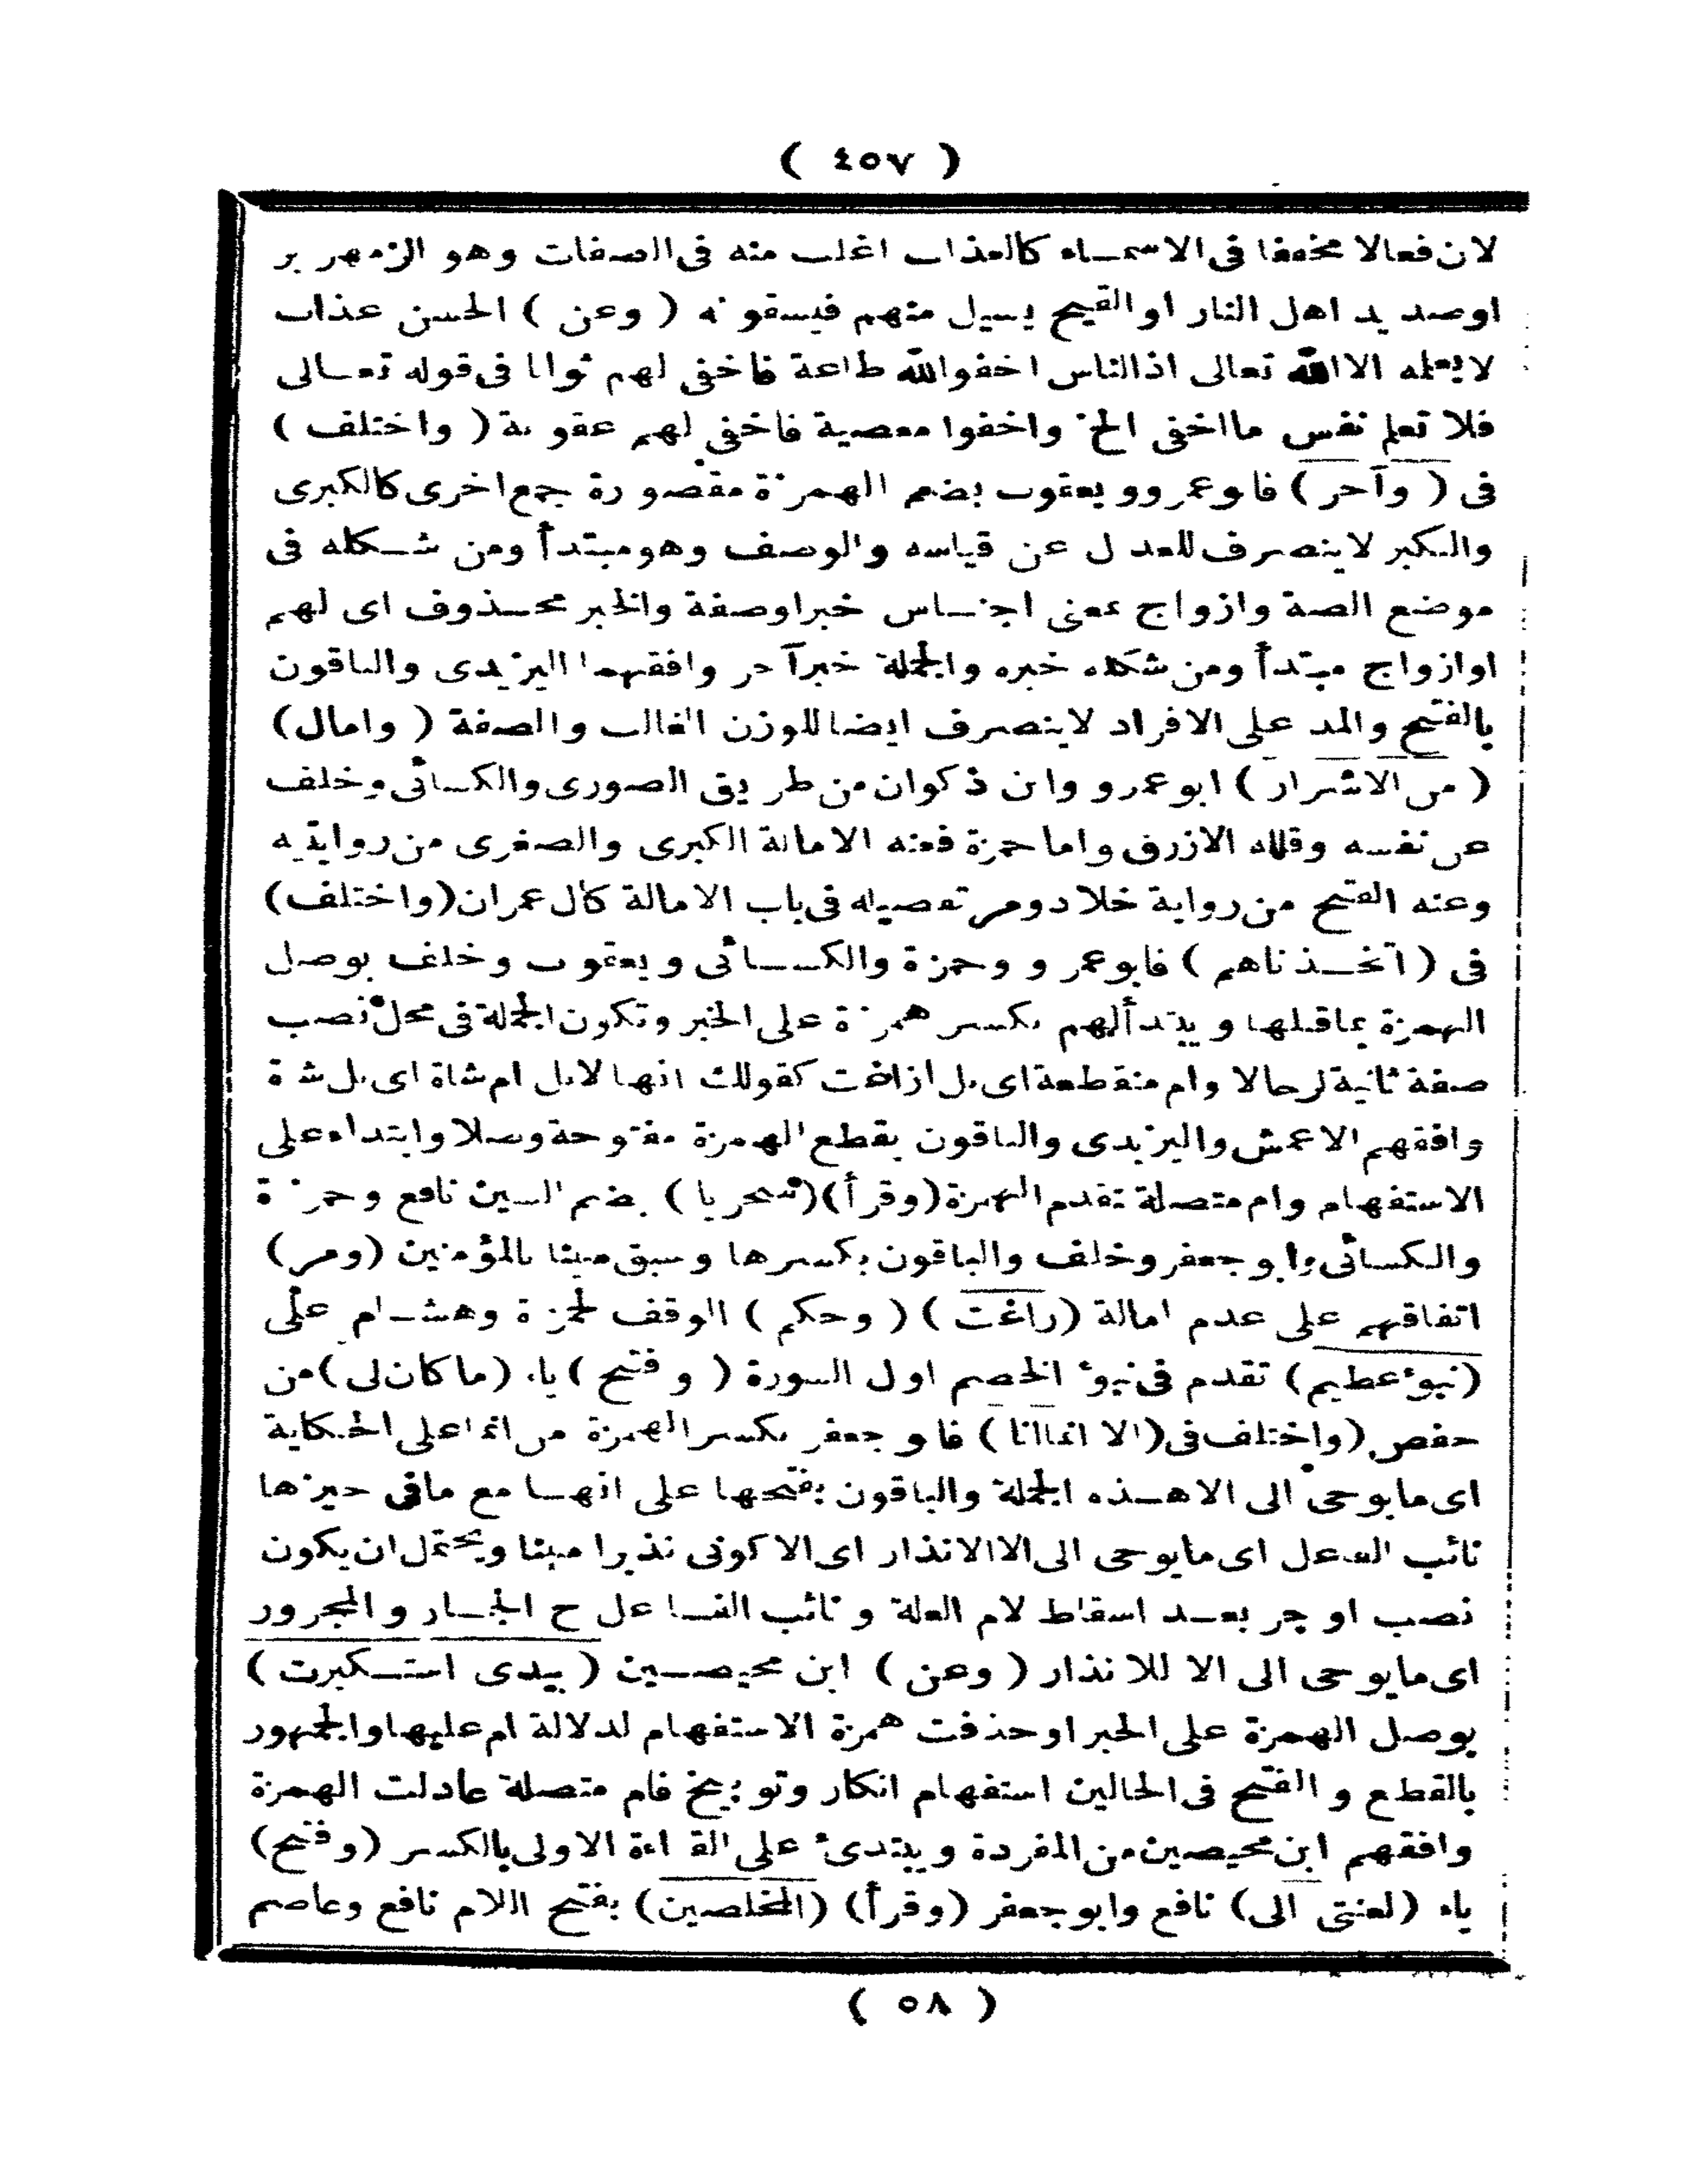 ( ٤٥٧ )
لان فعالا مخففا فى الاسماء كالعذاب اغلب منه فى الصفات وهو الزمهرير
اوصديد اهل النار او القيح يسيل منهم فيسقونه ( وعن ) الحسن عذاب
لا يعلمه الا الله تعالى اذ الناس اخفوا لله طاعة فاخفى لهم ثوابا فى قوله تعالى
فلا تعلم نفس ما اخفى الخ واخفوا معصية فاخفى لهم عقوبة ( واختلف )
فى ( وآخر ) فابو عمرو ويعقوب بضم الهمزة مقصورة جمع اخرى كالكبرى
والكبر لا ينصرف للعدل عن قياسه والوصف وهو مبتدأ ومن شكله فى
موضع الصفة وازواج بمعنى اجناس خبر اوصفة والخبر محذوف اى لهم
اوازواج مبتدأ ومن شكله خبره والجملة خبر آخر وافقهما اليزيدى والباقون
بالفتح والمد على الافراد لا ينصرف ايضا للوزن الغالب والصفة ( وامال )
( من الاشرار ) ابو عمرو وابن ذكوان من طريق الصورى والكسائى وخلف
عن نفسه وقلله الازرق واما حمزة فعنه الامالة الكبرى والصغرى من روايتيه
وعنه الفتح من رواية خلاد ومر تفصيله فى باب الامالة كآل عمران (واختلف)
فى ( اتخذناهم ) فابو عمرو وحمزة والكسائى ويعقوب وخلف بوصل
الهمزة بما قبلها ويبتدأ لهم بكسر همزة على الخبر وتكون الجملة فى محل نصب
صفة ثانية لرجالا وام منقطعة اى بل ازاغت كقولك انها لابل ام شاة اى بل شاة
وافقهم الاعمش واليزيدى والباقون بقطع الهمزة مفتوحة وصلا وابتداء على
الاستفهام وام متصلة تقدم الهمزة (وقرأ) (سخريا) بضم السين نافع وحمزة
والكسائى وابو جعفر وخلف والباقون بكسرها وسبق مبينا بالمؤمنين (ومر)
اتفاقهم على عدم امالة (زاغت) ( وحكم ) الوقف لحمزة وهشام على
(نبؤ عظيم) تقدم فى نبؤ الخصم اول السورة ( وفتح ) ياء (ما كان لى) من
حفص (واختلف فى (الا انما انا) فابو جعفر بكسر الهمزة من انما على الحكاية
اى ما يوحى الى الا هذه الجملة والباقون بفتحها على انها مع ما فى حيزها
نائب الفاعل اى ما يوحى الى الا الانذار اى الا كونى نذيرا مبينا ويحتمل ان يكون
نصب او جر بعد اسقاط لام العلة ونائب الفاعل ح الجار والمجرور
اى ما يوحى الى الا للانذار ( وعن ) ابن محيصين ( بيدى استكبرت )
بوصل الهمزة على الخبر او حذفت همزة الاستفهام لدلالة ام عليها والجمهور
بالقطع والفتح فى الحالين استفهام انكار وتوبيخ فام متصلة عادلت الهمزة
وافقهم ابن محيصين من المفردة ويبتدئ على القراءة الاولى بالكسر (وفتح)
ياء (لعنتى الى) نافع وابو جعفر (وقرأ) (المخلصين) بفتح اللام نافع وعاصم
( ٥٨ )